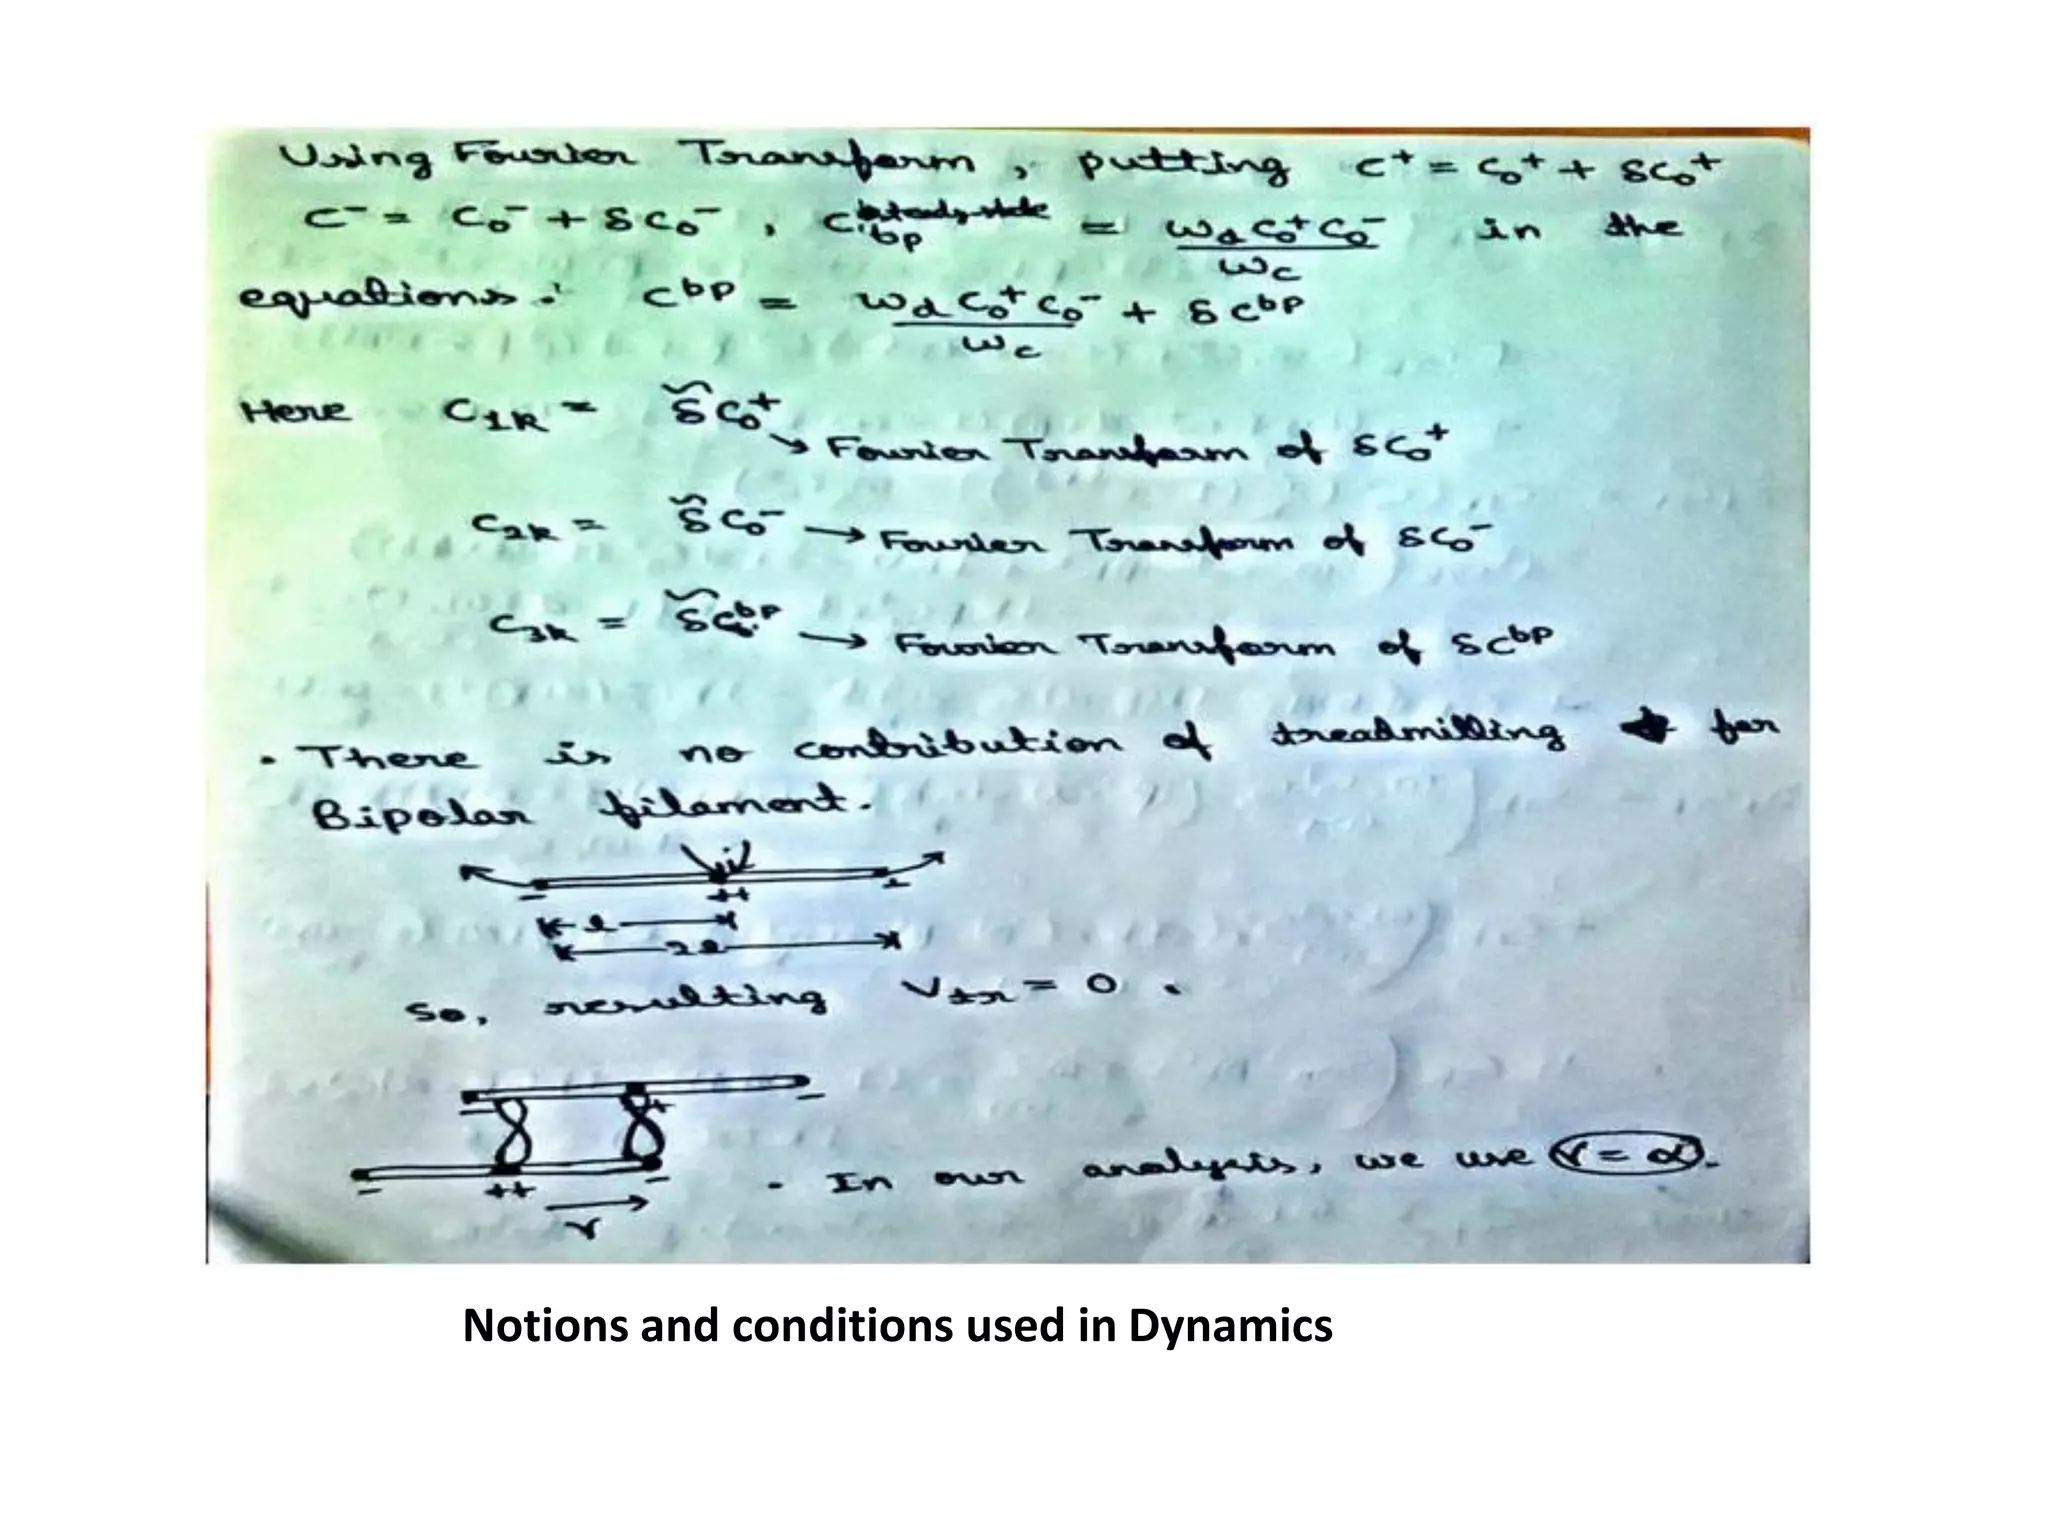 Using Fourier Transform, putting c⁺ = c₀⁺ + δc₀⁺
c⁻ = c₀⁻ + δc₀⁻, c_bp = ω_d c₀⁺ c₀⁻ / ω_c in the
equations: c^bp = ω_d c₀⁺ c₀⁻ / ω_c + δc^bp
Here c_1k = δ̃c₀⁺
→ Fourier Transform of δc₀⁺
c_2k = δ̃c₀⁻ → Fourier Transform of δc₀⁻
c_3k = δ̃c^bp → Fourier Transform of δc^bp
• There is no contribution of treadmilling for
Bipolar filament.
− ++ −
l
2l
So, resulting V_tr = 0.
− ++ −
− ++ −
r
• In our analysis, we use r = α.
Notions and conditions used in Dynamics